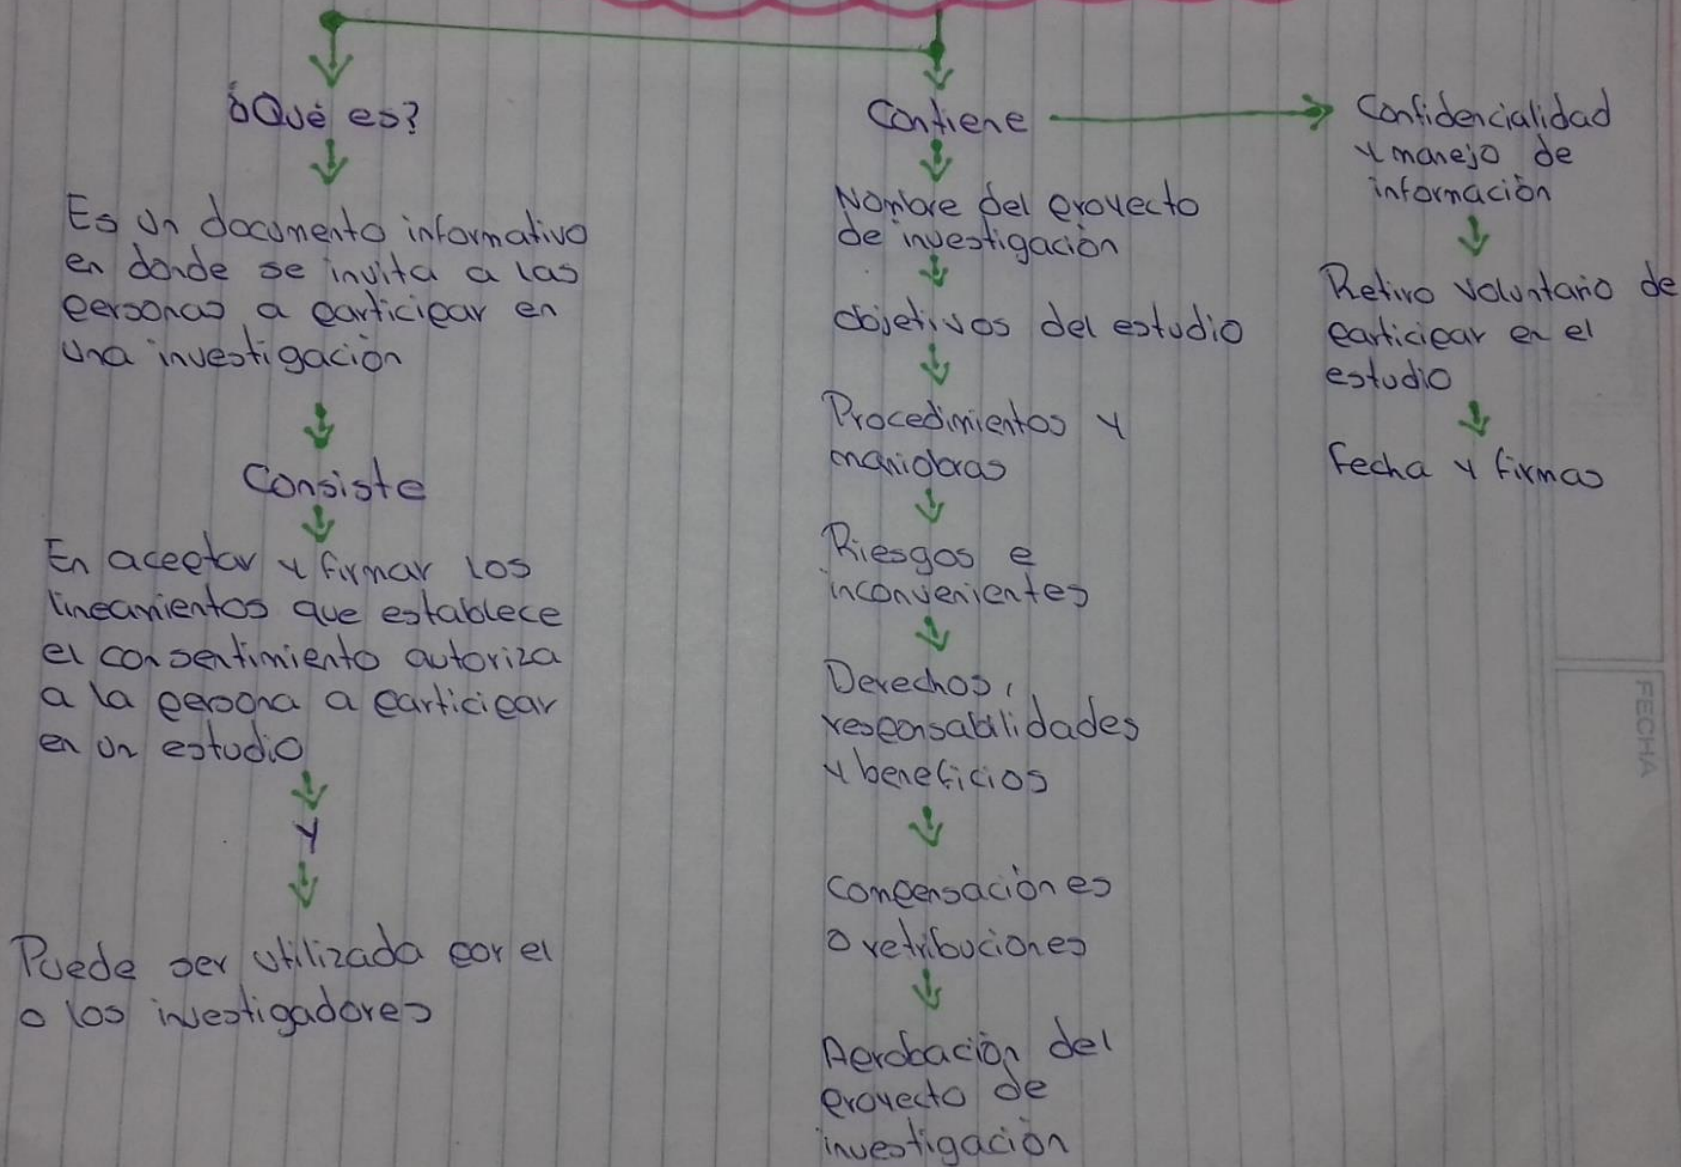 ¿Qué es?
Es un documento informativo
en donde se invita a las
personas a participar en
una investigación
Consiste
En aceptar y firmar los
lineamientos que establece
el consentimiento autoriza
a la persona a participar
en un estudio
y
Puede ser utilizada por el
o los investigadores
Contiene
Nombre del proyecto
de investigación
objetivos del estudio
Procedimientos y
maniobras
Riesgos e
inconvenientes
Derechos,
responsabilidades
y beneficios
compensaciónes
o retribuciones
Aprobación del
proyecto de
investigación
Confidencialidad
y manejo de
información
Retiro voluntario de
participar en el
estudio
Fecha y firmas
FECHA